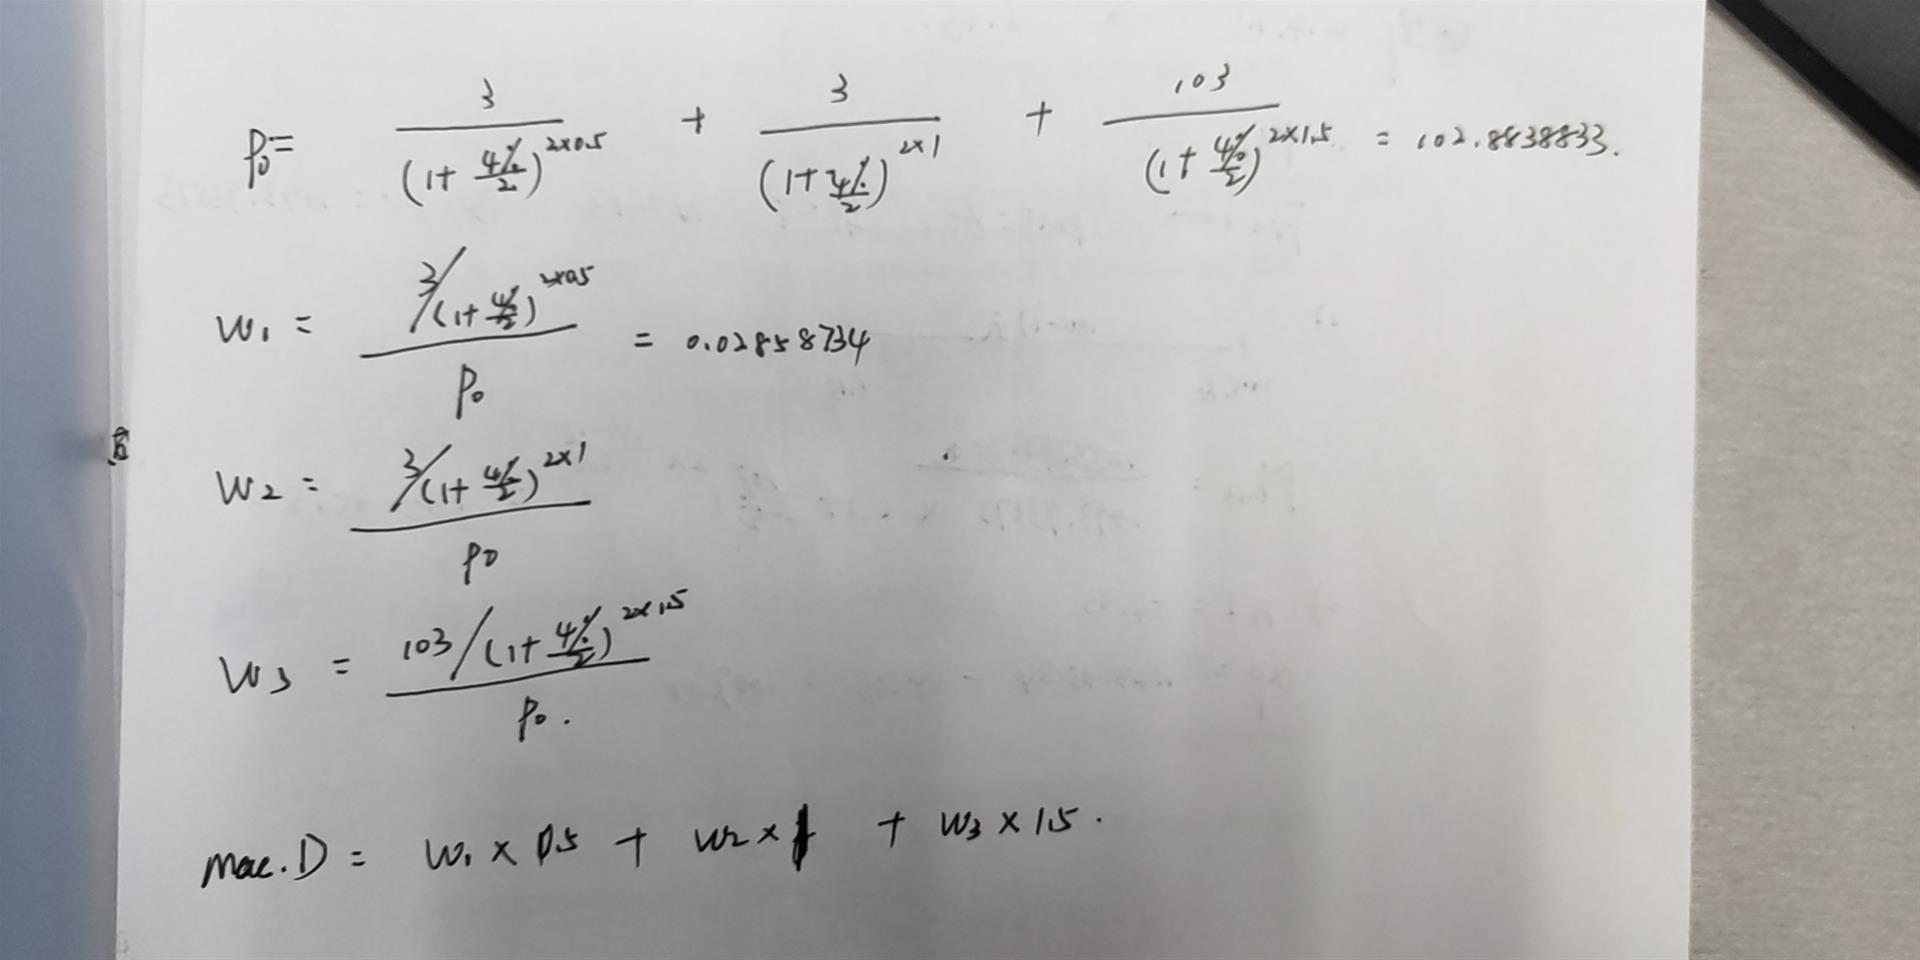 P₀ = 3/(1+4%/2)^(2×0.5) + 3/(1+4%/2)^(2×1) + 103/(1+4%/2)^(2×1.5) = 102.8838833.
W₁ = (3/(1+4%/2)^(2×0.5))/P₀ = 0.02858734
W₂ = (3/(1+4%/2)^(2×1))/P₀
W₃ = (103/(1+4%/2)^(2×1.5))/P₀.
Mac.D = W₁ × 0.5 + W₂ × 1 + W₃ × 1.5.